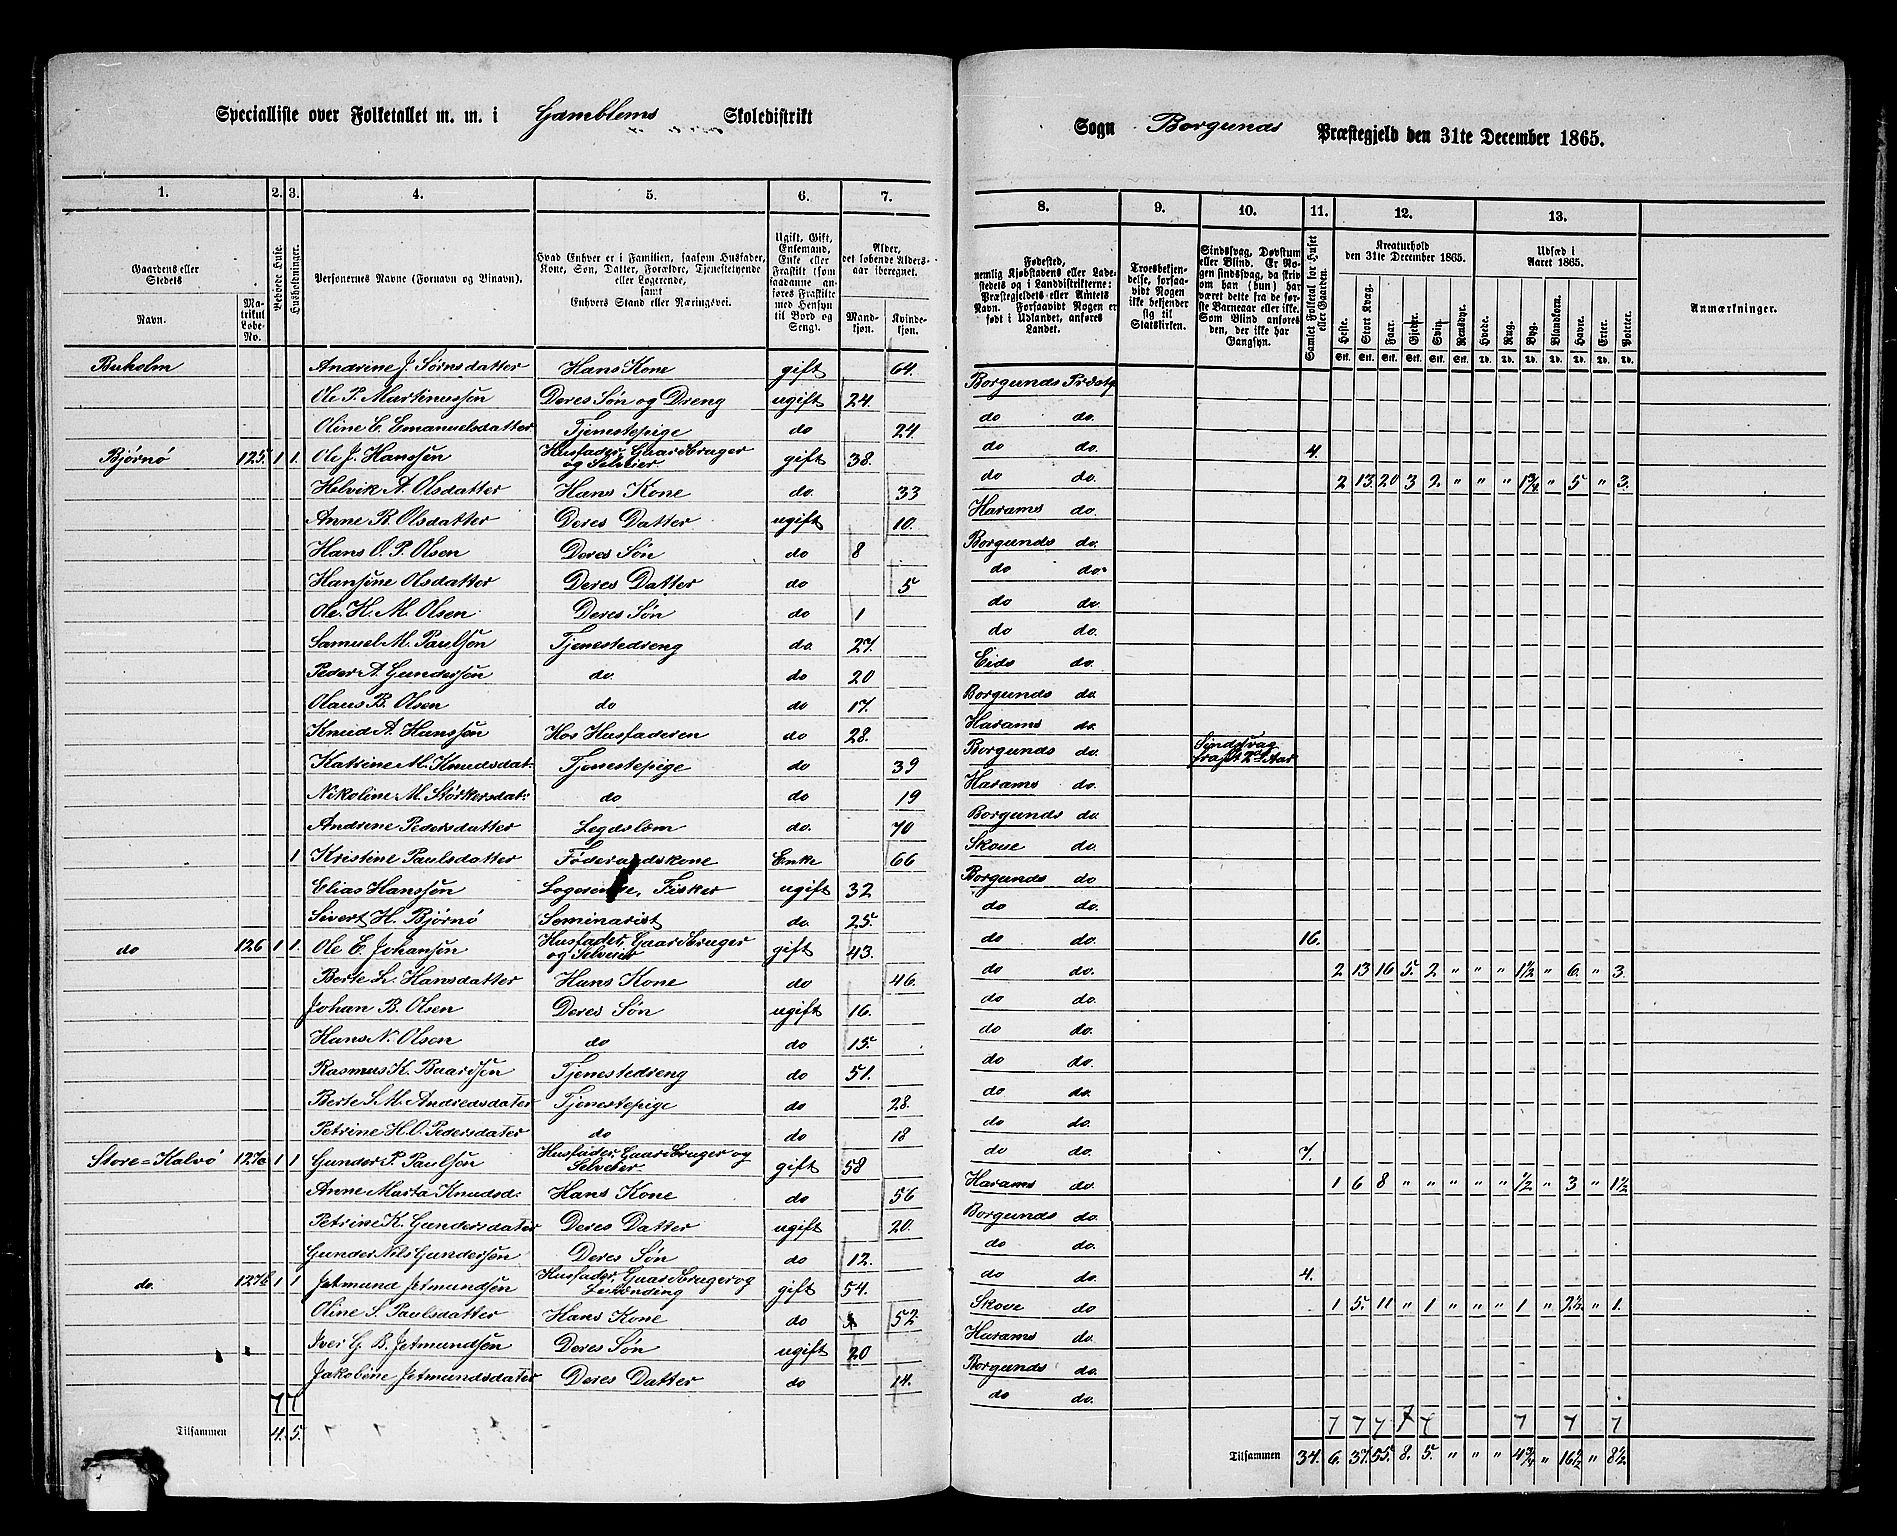 Specialliste over Folketallet m. m. i Gamblems Skoledistrikt
Sogn Borgunds Præstegjeld den 31te December 1865.
1. 2. 3. 4. 5. 6. 7.
8. 9. 10. 11. 12. 13.
Gaardens eller Stedets
Navn.
Matrikul Løbe-No.
Beboede Huse.
Husholdninger.
Personernes Navne (Fornavn og Tilnavn).
Hvad Enhver er i Familien, saasom Husfader, Kone, Søn, Datter, Forældre, Tjenestetyende eller Logerende,
samt
Enhvers Stand eller Næringsvei.
Ugift, Gift, Enkemand, Enke eller Fraskilt (som saadanne anføres Fraskilte med Hensyn til Bord og Seng).
Alder, det løbende Aldersaar iberegnet.
Mandkjøn. Kvindekjøn.
Fødested, nemlig Kjøbstadens eller Ladestedets og i Landdistrikterne: Præstegjeldets eller Amtets Navn. Forsaavidt Nogen er født i Udlandet, anføres Landet.
Troesbekjendelse, forsaavidt Nogen ikke bekjender sig til Statskirken.
Sindssvag, Døvstum eller Blind. Er Nogen sindssvag, da skrives om han (hun) har været dette fra de første Barneaar eller ikke. Som Blind anføres den, der ikke har Gangsyn.
Samlet Folketal for Huset eller Gaarden.
Kreaturhold den 31te December 1865.
Heste. Stort Kvæg. Faar. Gjeder. Sviin. Rensdyr.
Udsæd i Aaret 1865.
Hvede. Rug. Byg. Blandkorn. Havre. Erter. Poteter.
Anmærkninger.
Buholm Andrine J. Sørnsdatter Hans Kone gift 64. Borgunds Præstg.
Ole P. Martinussøn Deres Søn og Dreng ugift 24. do do.
Oline E. Emanuelsdatter Tjenestepige do 24. do do. 4.
Bjørnø 125. 1 1. Ole J. Hanssøn Husfader, Gaardbruger og Selveier gift 38. do do. 2 13. 20 3 2. " " 1¾ " 5 " 3.
Helvik A. Olsdatter Hans Kone do. 33 Harams do.
Anne B. Olsdatter Deres Datter ugift 10. Borgunds do.
Hans O. P. Olsen Deres Søn do 8 do do.
Hansine Olsdatter Deres Datter do 5 do do.
Ole H. M. Olsen Deres Søn do 1 do do.
Samuel M. Paulsøn Tjenestedreng do. 27. Eids do.
Peder A. Gundersøn do. do 20 Borgunds do.
Olaus B. Olsen do do 17. Harams do.
Knud A. Hanssøn Hos Husfaderen do 28. Borgunds do. Sindssvag fra sit 2det Aar
Katrine M. Knudsdat. Tjenestepige do 39 Harams do.
Nikoline M. Størkersdat. do do 19 Borgunds do.
Andrine Pedersdatter Legdslem do. 70 Skoue do.
1 Kristine Paulsdatter Føderaadskone Enke 66 Borgunds do
Elias Hanssøn Logerende, Fisker ugift 32 do do.
Sivert H. Bjørnø Seminarist do. 25. do do. 16.
do 126 1 1. Ole E. Johansøn Husfader, Gaardbruger og Selveier gift 43. do do. 2 13 16 5. 2 " " " 1½ " 6. " 3.
Berte L. Hansdatter Hans Kone do 46. do do.
Johan B. Olsen Deres Søn ugift 16. do do.
Hans N. Olsen do do 15. do do.
Rasmus K. Baardsøn Tjenestedreng do 51. do do.
Berte S. M. Andredsdater Tjenestepige do 28. do do.
Petrine H. O. Pedersdater do do 18 do do. 7.
Store=Kalvø 127a 1 1 Gunder P. Paulsøn Husfader, Gaardbruger og Selveier gift 58 Harams do. 1 6 8 " " " " " ½ " 3 " 1½
Anne Marta Knudsd. Hans Kone do 56 Borgunds do.
Petrine K. Gundersdater Deres Datter ugift 20. do do.
Gunder Nils Gundersøn Deres Søn do 12. do do. 4.
do. 127b 1 1 Jetmund Jetmundsøn Husfader, Gaardbruger og gift 54. Skove do 1 5. 11 " 1 " " " 1 " 2½ " 1.
Oline S. Paulsdatter Hans Kone do 52 Harams do.
Iver G. B. Jetmundsøn Deres Søn ugift 20 Borgunds do.
Jakobine Jetmundsdater Deres Datter do 14. do do.
7 7
7 7 7 7 7 7 7 7
Tilsammen 4. 5.
Tilsammen 34. 6. 37. 55. 8. 5. " " " 4¾ " 16½ " 8½